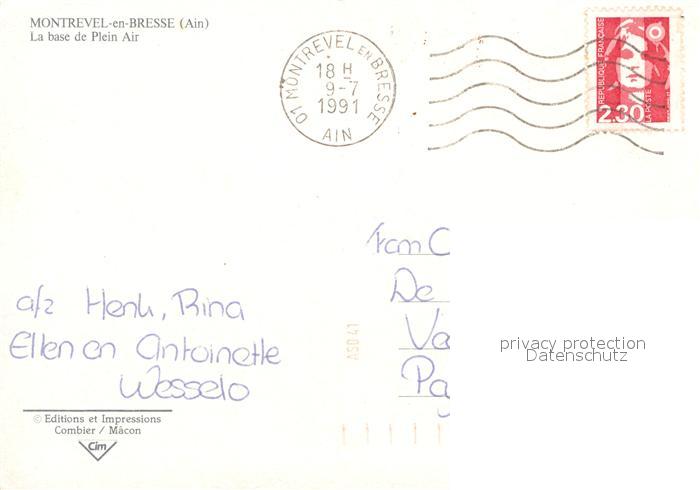 MONTREVEL-en-BRESSE (Ain)
La base de Plein Air
01 MONTREVEL EN BRESSE
18 H
9-7
1991
AIN
REPUBLIQUE FRANÇAISE
2.30
LA POSTE
Fam C
De
Va
Pa
a/z Henk, Rina
Ellen en Antoinette
Wesselo
ASD 41
privacy protection
Datenschutz
© Editions et Impressions
Combier / Mâcon
Cim